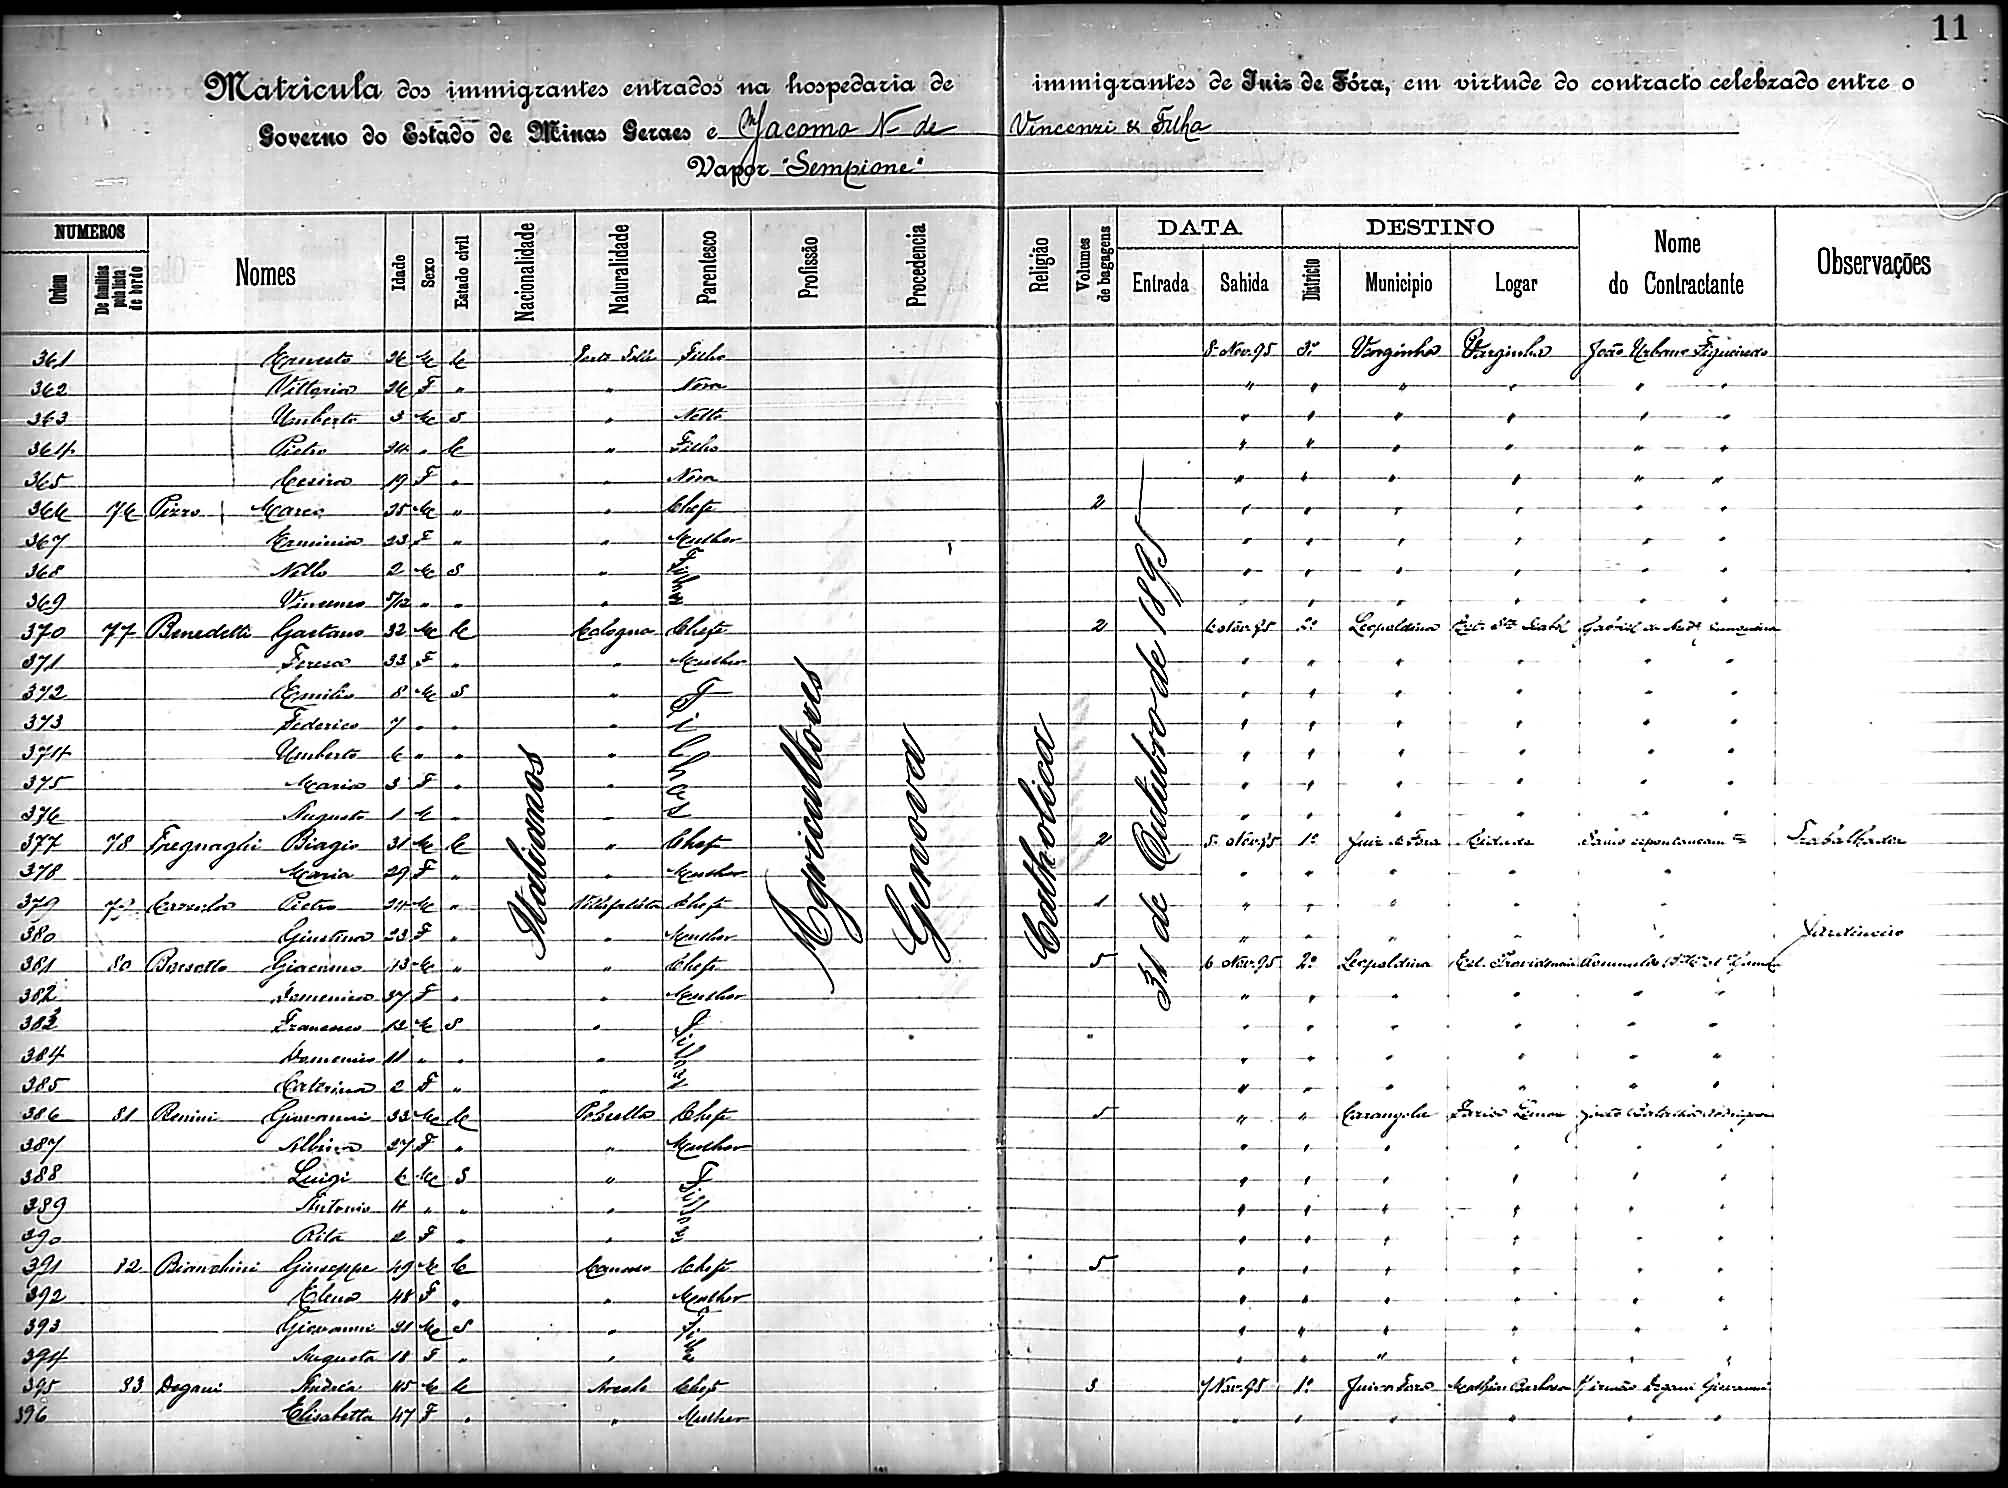 11
Matricula dos immigrantes entrados na hospedaria de immigrantes de Juiz de Fóra, em virtude do contracto celebrado entre o
Governo do Estado de Minas Geraes e Giacomo N. de Vincenzi & Filho
Vapor "Sempione"
NUMEROS DATA DESTINO
Ordem De familias pela lista de bordo Nomes Idade Sexo Estado civil Nacionalidade Naturalidade Parentesco Profissão Procedencia Religião Volumes de bagagens Entrada Sahida Districto Municipio Logar Nome do Contractante Observações
Italianos Agricultores Genova Catholica 31 de Outubro de 1895
361 Ernesto 26 M C Filho 8 Nov. 95 3º Varginha Varginha João Urbano Figueiredo
362 Vittoria 26 F " " Nora " " " " " "
363 Umberto 3 M S " Netto " " " " " "
364 Pietro 24 " C " Filho " " " " " "
365 Cesira 19 F " " Nora " " " " " "
366 76 Pizzo Marco 25 M " " Chefe 2 " " " " " "
367 Erminia 23 F " " Mulher " " " " " "
368 Nello 2 M S " Filhos " " " " " "
369 Vincenzo 5/12 " " " " " " " " "
370 77 Benedetti Gaetano 32 M C Cologna Chefe 2 6 Nov. 95 2º Leopoldina
371 Teresa 33 F " " Mulher " " " " " "
372 Emilio 8 M S " Filhos " " " " " "
373 Federico 7 " " " " " " " " "
374 Umberto 6 " " " " " " " " "
375 Maria 3 F " " " " " " " "
376 Augusto 1 M " " " " " " " "
377 78 Fregnaghi Biagio 31 M C " Chefe 2 5 Nov. 95 1º Juiz de Fora Cidade Sahio espontaneamte Trabalhador
378 Maria 29 F " " Mulher " " " " "
379 79 Pietro 24 M " Villafaletto Chefe 1 " " " " "
380 Giustina 23 F " " Mulher " " " " " Jardineiro
381 80 Borsotto Giacomo 43 M " " Chefe 5 6 Nov. 95 2º Leopoldina Est. Providencia
382 Domenica 37 F " " Mulher " " " " " "
383 Francesco 12 M S " Filhos " " " " " "
384 Domenico 11 " " " " " " " " "
385 Caterina 2 F " " " " " " " "
386 81 Renini Giovanni 33 M C Chefe 5 " " Carangola Faria Lemos
387 Albina 27 F " " Mulher " " " " " "
388 Luigi 6 M S " Filhos " " " " " "
389 Antonio 4 " " " " " " " " "
390 Rita 2 F " " " " " " " "
391 82 Bianchini Giuseppe 49 M C Chefe 5 " " " " " "
392 Elena 48 F " " Mulher " " " " " "
393 Giovanni 21 M S " Filhos " " " " " "
394 Augusta 18 F " " " " " " " "
395 83 Degani Andrea 45 M C Arcole Chefe 3 7 Nov. 95 1º Juiz de Fora Mathias Barbosa Degani Giovanni
396 Elisabetta 47 F " " Mulher " " " " " "